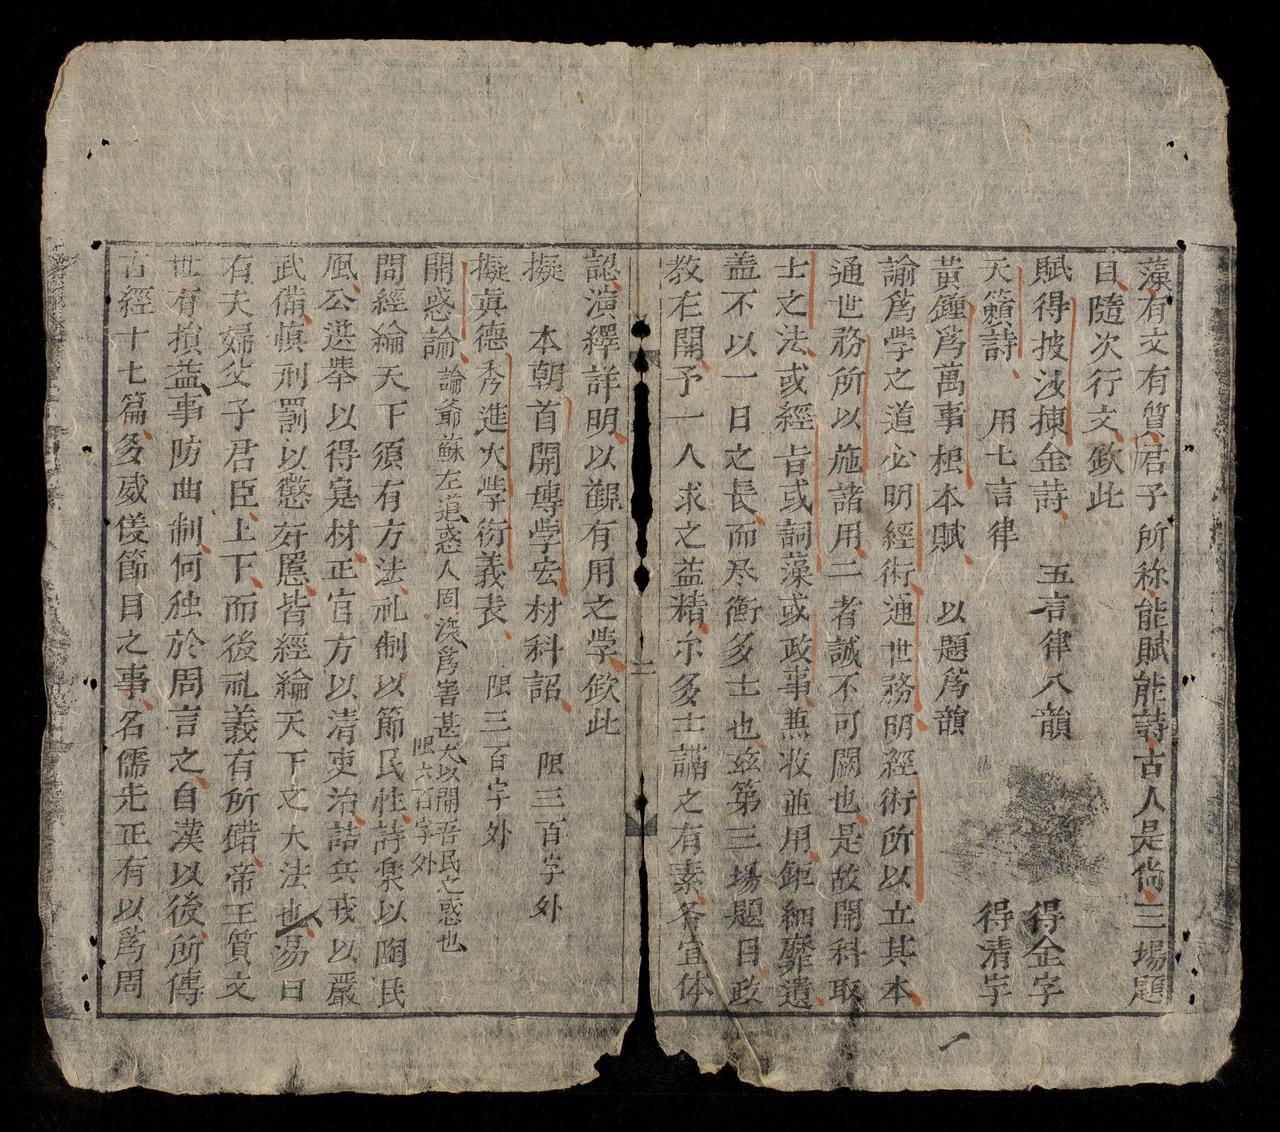 藻有文有質君子所称能賦能詩古人是尙三場題
目隨次行文欽此
賦得披沙揀金詩 五言律八韻 得金字
天籟詩 用七言律 得清字
黃鐘爲萬事根本賦 以題爲韻
諭爲学之道必明經術通世務明經術所以立其本
通世務所以施諸用二者誠不可闕也是故開科取
士之法或經旨或詞藻或政事兼收並用鉅細靡遺
盖不以一日之長而尽衡多士也兹第三場題目政
教在開予一人求之益精尔多士講之有素各宜体
認演繹詳明以觀有用之學欽此
擬 本朝首開博学宏材科詔 限三百字外
擬眞德秀進大學衍義表 限三百字外
開惑論 論爺蘇左道惑人固深爲害甚大以開吾民之惑也 限六百字外
問經綸天下須有方法礼制以節民性詩樂以陶民
風公選舉以得寔材正官方以清吏治詰兵戎以嚴
武備慎刑罰以懲奸慝皆經綸天下之大法也易曰
有夫婦父子君臣上下而後礼義有所錯帝王質文
世有損益事防曲制何独於周言之自漢以後所傳
古經十七篇多威儀節目之事名儒先正有以爲周
二
一